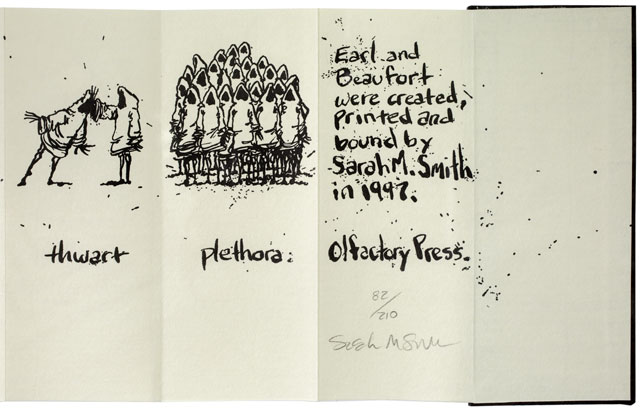 thwart
plethora.
Earl and
Beaufort
were created,
Printed and
bound by
Sarah M. Smith
in 1997.
Olfactory Press.
82/210